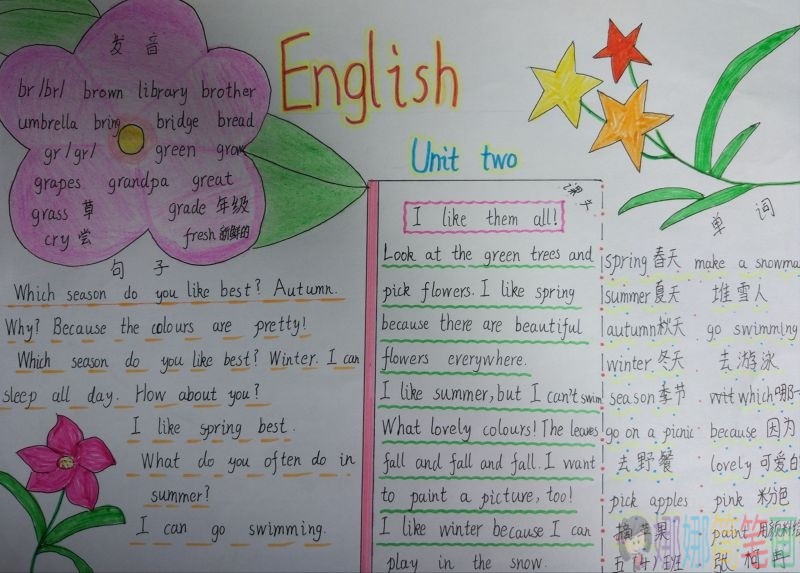 发音
br /br/ brown library brother
umbrella bring bridge bread
gr /gr/ green grow
grapes grandpa great
grass 草 grade 年级
cry 尝 fresh 新鲜的
句子
Which season do you like best? Autumn.
Why? Because the colours are pretty!
Which season do you like best? Winter. I can
sleep all day. How about you?
I like spring best.
What do you often do in
summer?
I can go swimming.
English
Unit two
课文
I like them all!
Look at the green trees and
pick flowers. I like spring
because there are beautiful
flowers everywhere.
I like summer, but I can't swim
What lovely colours! The leaves
fall and fall and fall. I want
to paint a picture, too!
I like winter because I can
play in the snow.
单词
spring 春天 make a snowma
summer 夏天 堆雪人
autumn 秋天 go swimming
winter 冬天 去游泳
season 季节 which 哪
go on a picnic because 因为
去野餐 lovely 可爱的
pick apples pink 粉色
摘苹果 paint
五(4)班 张